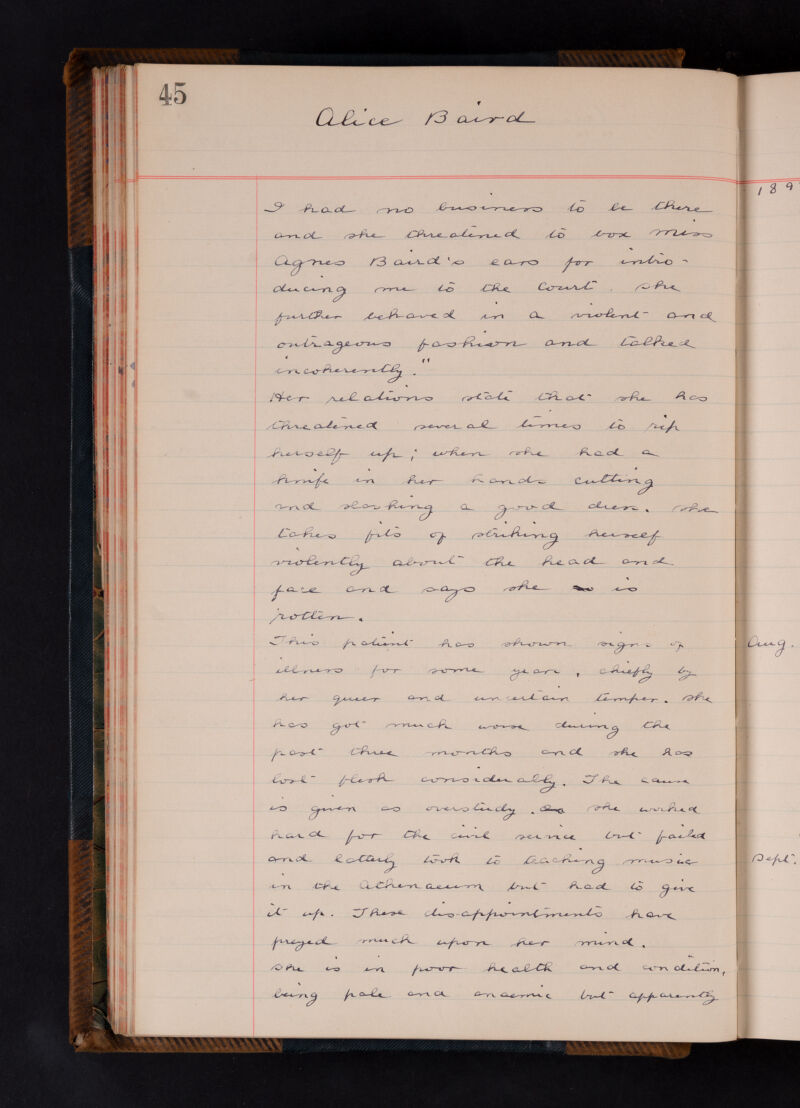 45
Alice Baird
189
I had no business to be there
and she threatened to box Miss
Agnes Baird's ears for intro-
ducing me to the Court. She
further behaved in a violent and
outrageous fashion and talked
incoherently."
Her relations state that she has
threatened several times to rip
herself up; when she had a
knife in her hands cutting
and slashing a good dress. She
takes fits of striking herself
violently about the head and
face and says she is
rotten.
This patient has shown signs of
illness for some years, chiefly by
her queer and uncertain temper. She
has got much worse during the
past three months and she has
lost flesh considerably. The cause
is given as overstudy. as she worked
hard for the civil service but failed
and latterly took to teaching music
in the Athenaeum but had to give
it up. These disappointments have
preyed much upon her mind.
She is in poor health and condition,
being pale and anaemic but apparently
Aug.
Sept.